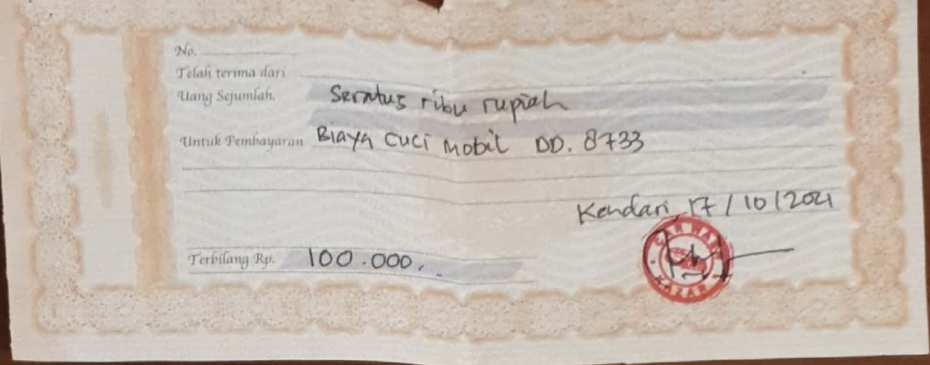 No.
Telah terima dari
Uang Sejumlah. Seratus ribu rupiah
Untuk Pembayaran Biaya Cuci Mobil DD. 8733
Kendari, 17/10/2021
Terbilang Rp. 100.000,-
CAR WASH
KAZAR